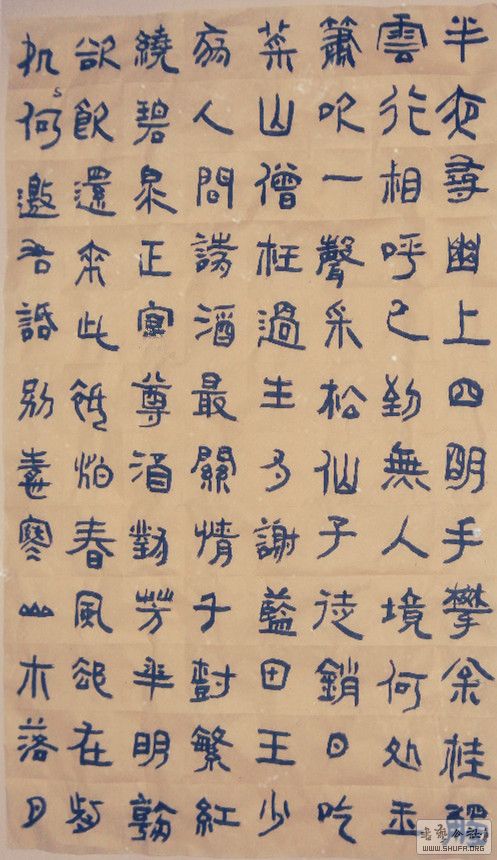 半夜尋幽上四明手攀松桂
雲行相呼已到無人境何处玉
簫吹一聲采松仙子徒銷日吃
菜山僧枉過生多謝藍田王少
府人間詩酒最關情千樹繁紅
繞碧泉正宜尊酒對芳年明朝
欲飲還來此祇怕春風卻在前
何邀君話別寒山木落月
書法公社
WWW.SHUFA.ORG